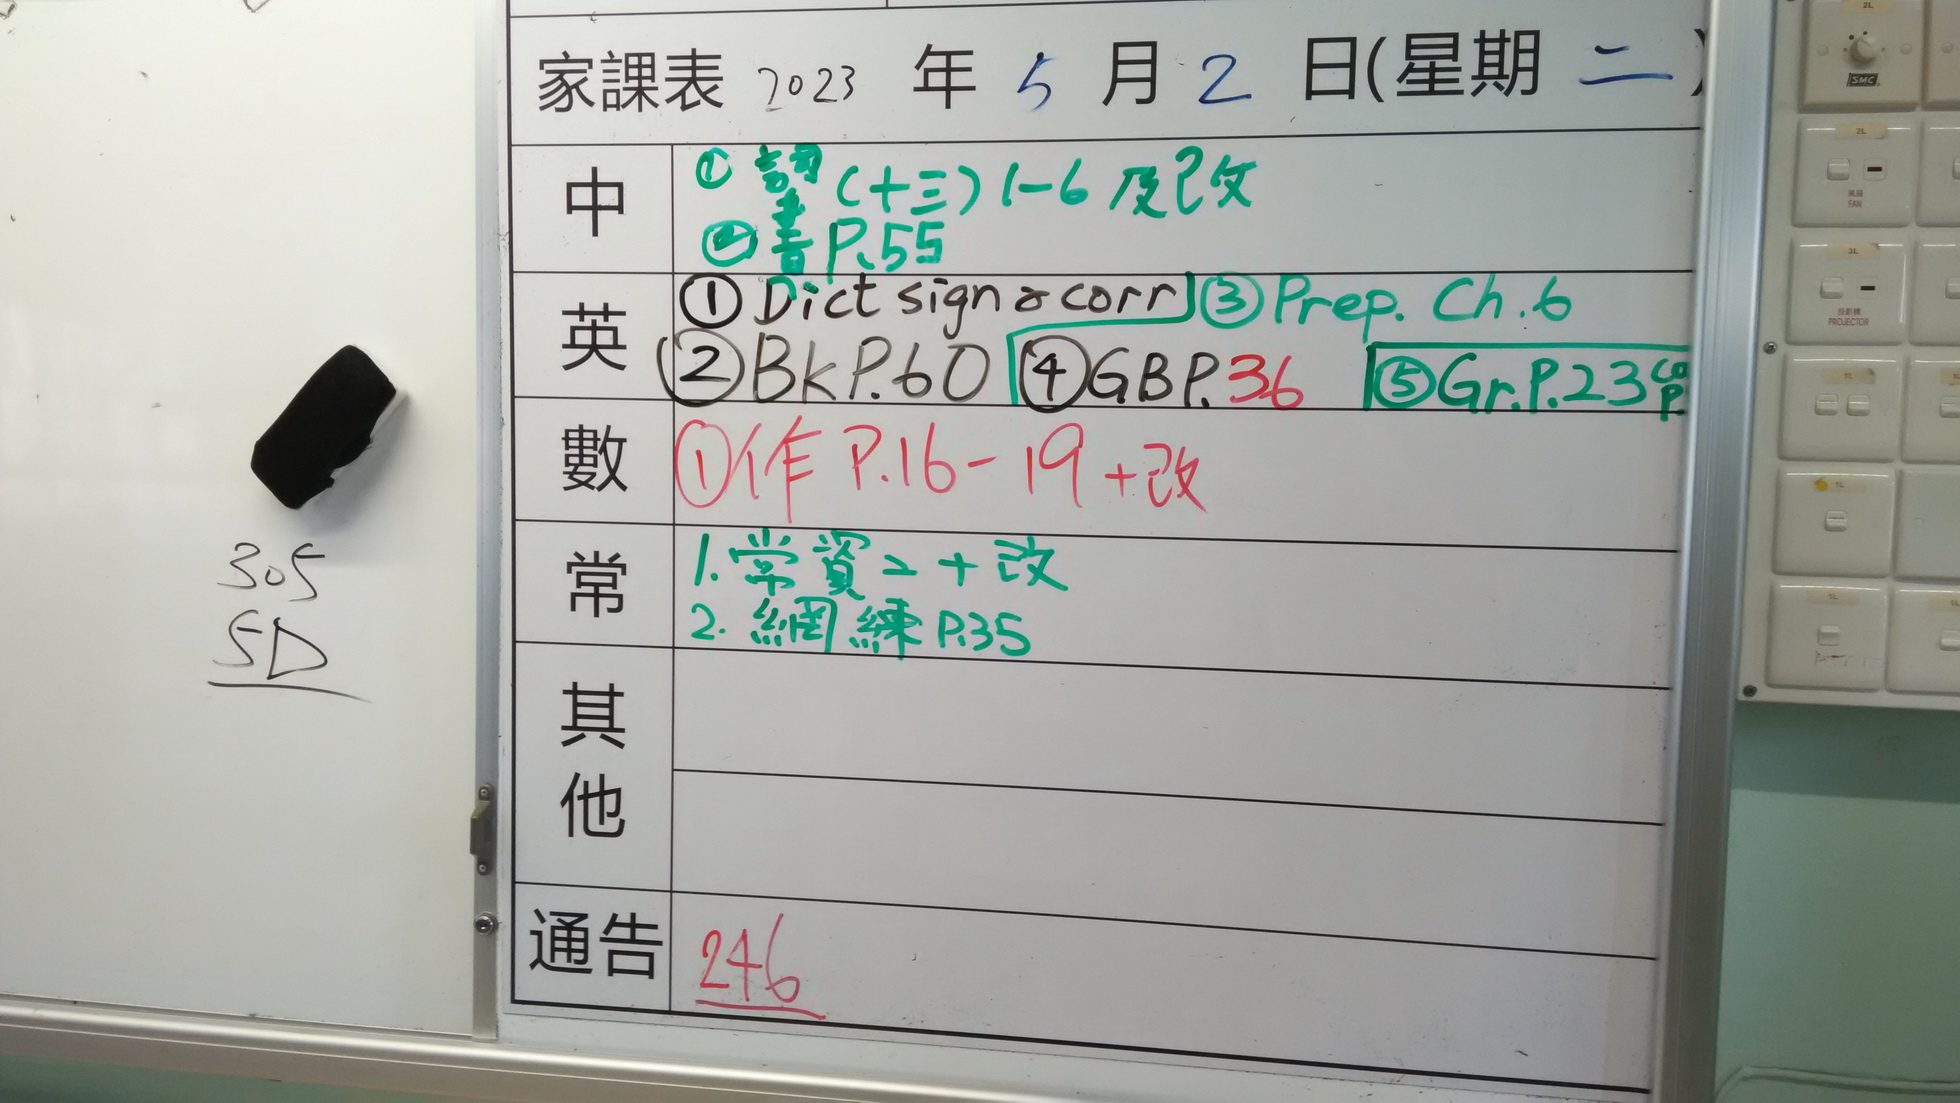 家課表 2023 年 5 月 2 日(星期 二 )
中
① 詞(十三) 1-6 及已改
② 書 P.55
英
① Dict sign & corr ③ Prep. Ch.6
② Bk P.60 ④ GB P.36 ⑤ Gr.P.23
數
① 作 P.16-19 + 改
常
1. 常資二 + 改
2. 網練 P.35
其他
通告
246
305
5D
SMC
FAN
PROJECTOR